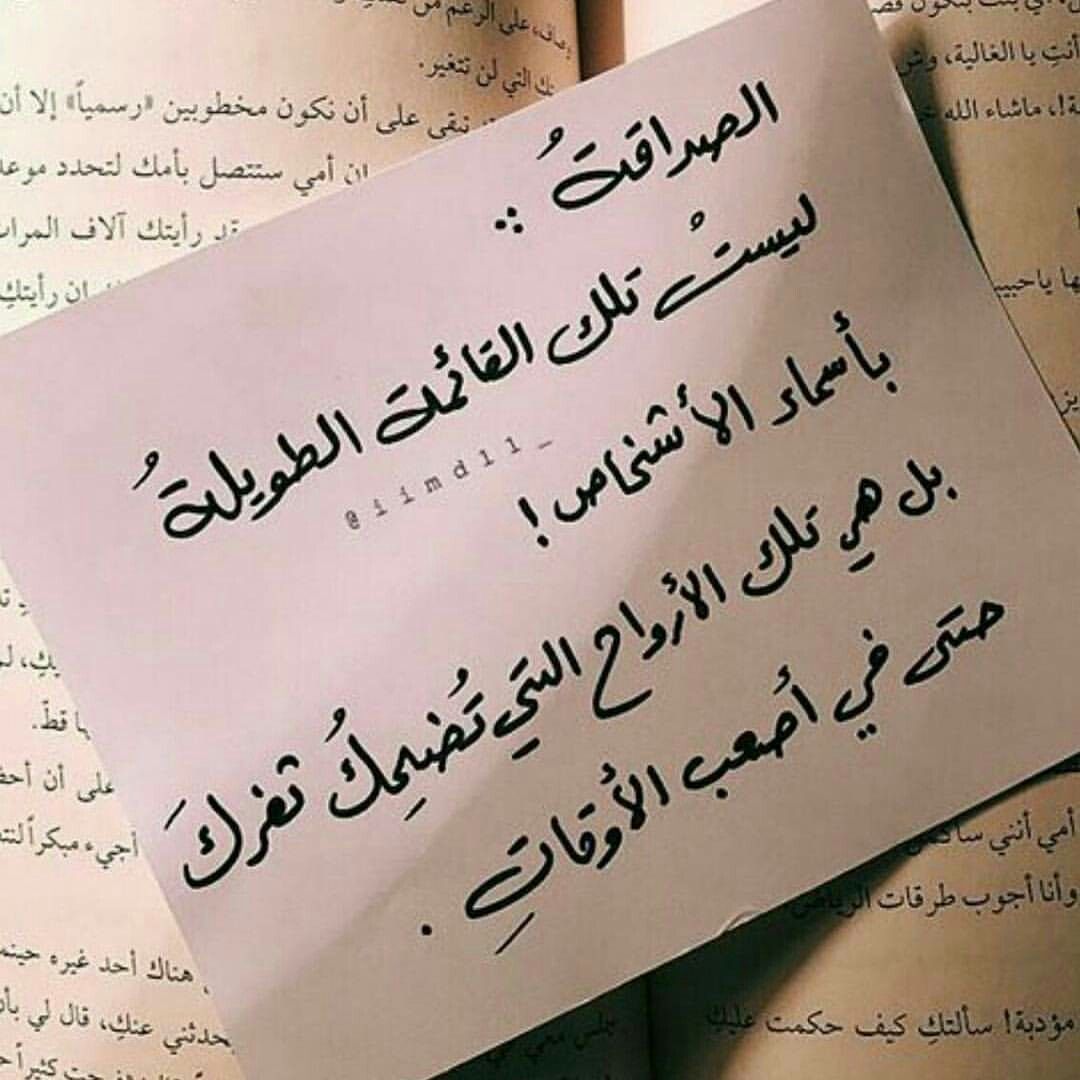 الصداقةُ :
ليستْ تلك القائمة الطويلةُ
@iimd11_
بأسماء الأشخاص !
بل هي تلك الأرواح التي تُضحِكُ ثغركَ
حتى في أصعب الأوقاتِ .
على الرغم من
تك التي لن تتغير.
تبقى على أن نكون مخطوبين «رسمياً» إلا أن
إن أمي ستتصل بأمك لتحدد موعد
رأيتك آلاف المرات
إن رأيتكِ
قطّ.
على أن
أجيء مبكراً
هناك أحد غيره حينما
يحدثني عنكِ، قال لي بأن
كثيراً
أنتِ يا الغالية،
ماشاء الله
أمي أنني
وأنا أجوب طرقات الرياض
مؤدبة! سألتكِ كيف حكمت عليكِ